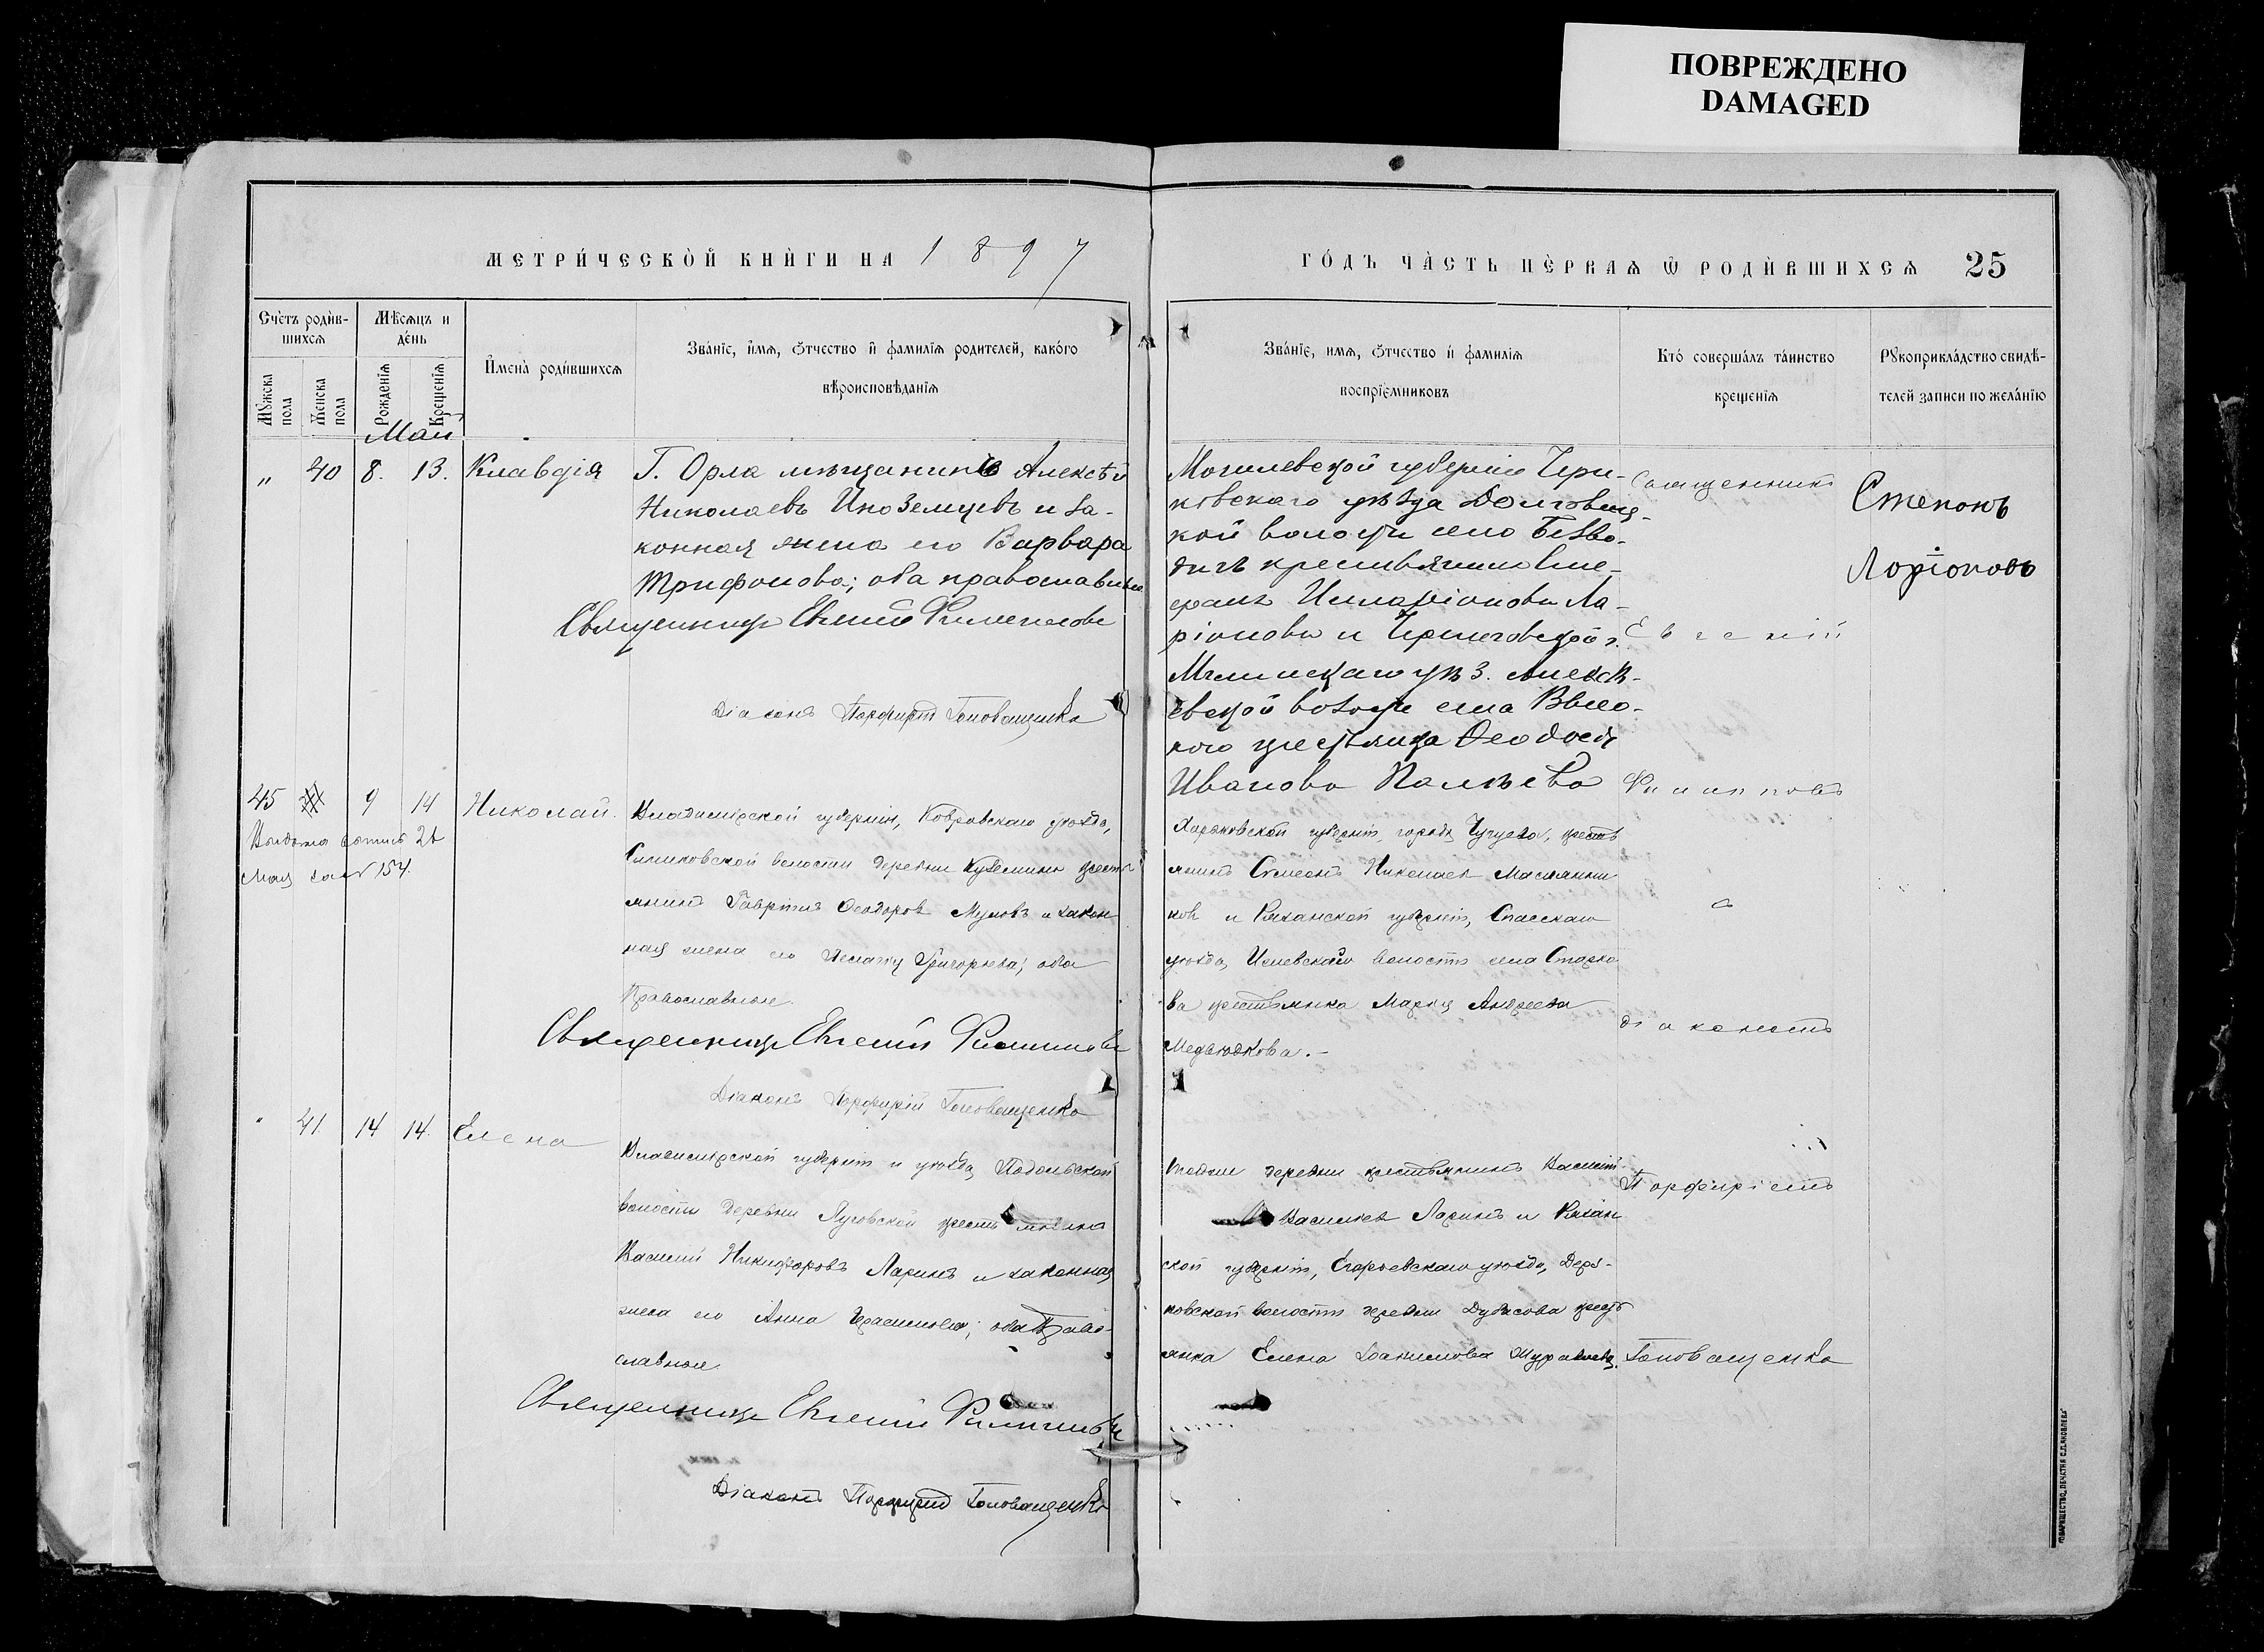 ПОВРЕЖДЕНО
DAMAGED
МЕТРИ́ЧЕСКОЙ КНИ́ГИ НА 1897
ГО́ДЪ ЧА́СТЬ ПЕ́РВАѦ Ѿ РОДИ́ВШИХСѦ 25
Сче́тъ роди́в-
шихсѧ
Мѣ́сѧцъ и
де́нь
Мꙋжеска
пола
Женска
пола
Рожденїѧ
Крещенїѧ
И҆мена̀ роди́вшихсѧ
Зва́нїе, и҆́мѧ, ѻ҆́тчество и҆ фамилїѧ родителей, како́го
вѣроисповѣданїѧ
Зва́нїе, имѧ, ѻ҆́тчество и҆ фамилїѧ
воспрїемниковъ
Кто̀ соверша́лъ та́инство
крещенїѧ
Рꙋкоприкла́дство свидѣ́-
телей записи по жела́нїю
Май
„ 40 8. 13. Клавдія
Г. Орла мѣщанинъ Алексѣй
Николаевъ Иноземцевъ и за-
конная жена его Варвара
Трифонова; оба православные
Священникъ Евгеній Филипповъ
Діаконъ Порфирій Головащенко
Могилевской губерніи Чери-
ковскаго уѣзда Долгович-
кой волости село Безво-
дичъ крестьянинъ Сте-
фанъ Илларіоновъ Ла-
ріоновъ и Черниговской г.
Мглинскаго уѣз. Алексѣ-
евской волости села Высо-
кого крестьянка Ѳеодосія
Иванова
Священникъ
Евгеній
Филипповъ
Степонъ
Лоріоновъ
45 9 14 Николай.
Выдана выпись 21
Мая за № 154.
Владимірской губерніи, Ковровскаго уѣзда,
волости деревни крестъ-
янинъ Гавріилъ Ѳеодоровъ и закон-
ная жена его Григорьева; оба
Православные.
Священникъ Евгеній Филипповъ
Діаконъ Порфирій Головащенко
Харьковской губерніи, города Чугуева, крестъ
янинъ Симеонъ Николаевъ Маслянни
ковъ и Рязанской губерніи, Спасскаго
уѣзда, волости села Старко
ва крестьянка Марія Андреева
Медвѣдкова.-
с
діакономъ
" 41. 14 14. Елена
Владимірской губерніи и уѣзда, Подольской
волости деревни Луговской крестьянинъ
Василій Никифоровъ Ларинъ и законная
жена его Анна Герасимова; оба Право-
славные.
Священникъ Евгеній Филипповъ
Діаконъ Порфирій Головащенко
деревни крестьянинъ Василій
Васильевъ Ларинъ и Рязан
ской губерніи, Егорьевскаго уѣзда,
ковской волости деревни Дубасова крест
янка Елена Іоакимова
Порфиріемъ
Головащенко
ТОВАРИЩЕСТВО „ПЕЧАТНЯ С.П.ЯКОВЛЕВА“